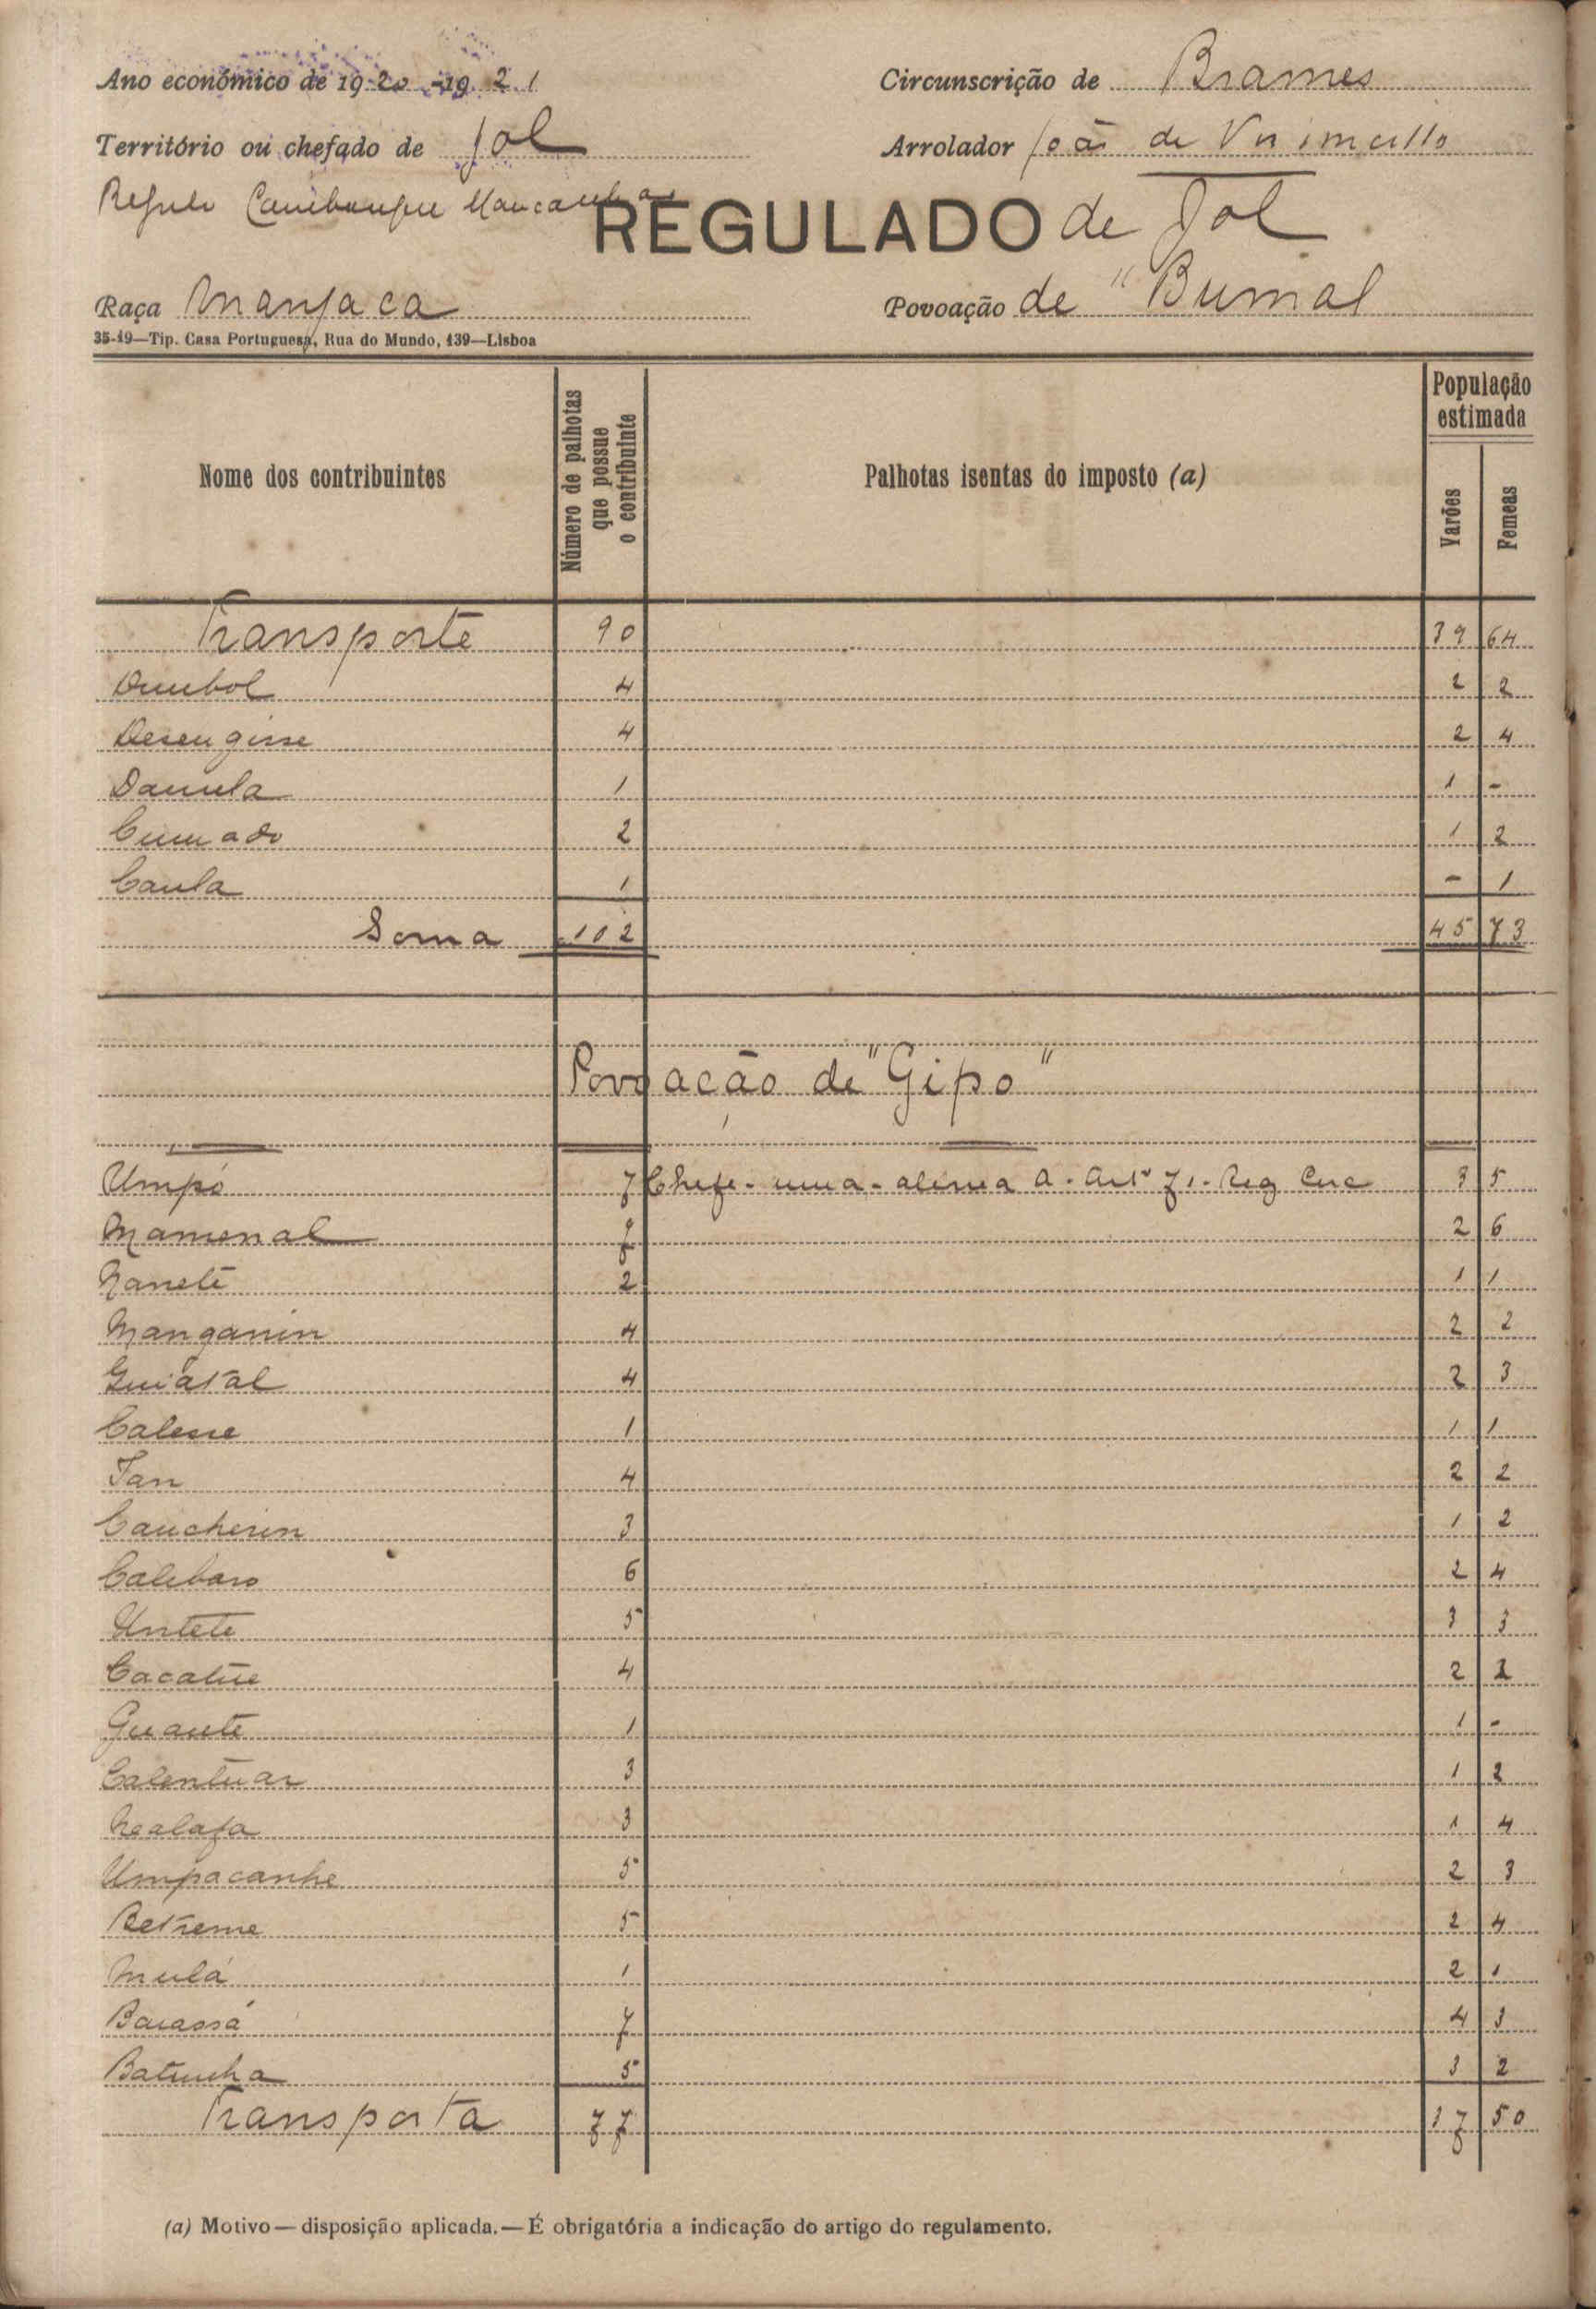 Ano económico de 1920-1921 Circunscrição de Brames
Território ou chefado de Jol Arrolador João de
Regulo
REGULADO de Jol
Raça Manjaca Povoação de "Bumal
35-19—Tip. Casa Portuguesa, Rua do Mundo, 139—Lisboa
Nome dos contribuintes Número de palhotas que possue o contribuinte Palhotas isentas do imposto (a) População estimada Varões Femeas
Transporte 90 39 64
4 2 2
4 2 4
Damula 1 1 -
Cumado 2 1 2
Caula 1 - 1
Soma 102 45 73
Povoação de "Gipo"
Umpó 7 Chefe - uma - alinea a. Artº 71. Reg 3 5
Mamenal 7 2 6
Naneté 2 1 1
Manganin 4 2 2
Guiatal 4 2 3
1 1 1
Jan 4 2 2
Caucherin 3 1 2
Calibaro 6 2 4
Untete 5 3 3
Cacatúe 4 2 2
Guante 1 1 -
Calentuar 3 1 2
Nealafa 3 1 4
Umpacanhe 5 2 3
Betreme 5 2 4
Mulá 1 2 1
Bacassá 7 4 3
Batunha 5 3 2
Transporta 77 37 50
(a) Motivo — disposição aplicada. — É obrigatória a indicação do artigo do regulamento.